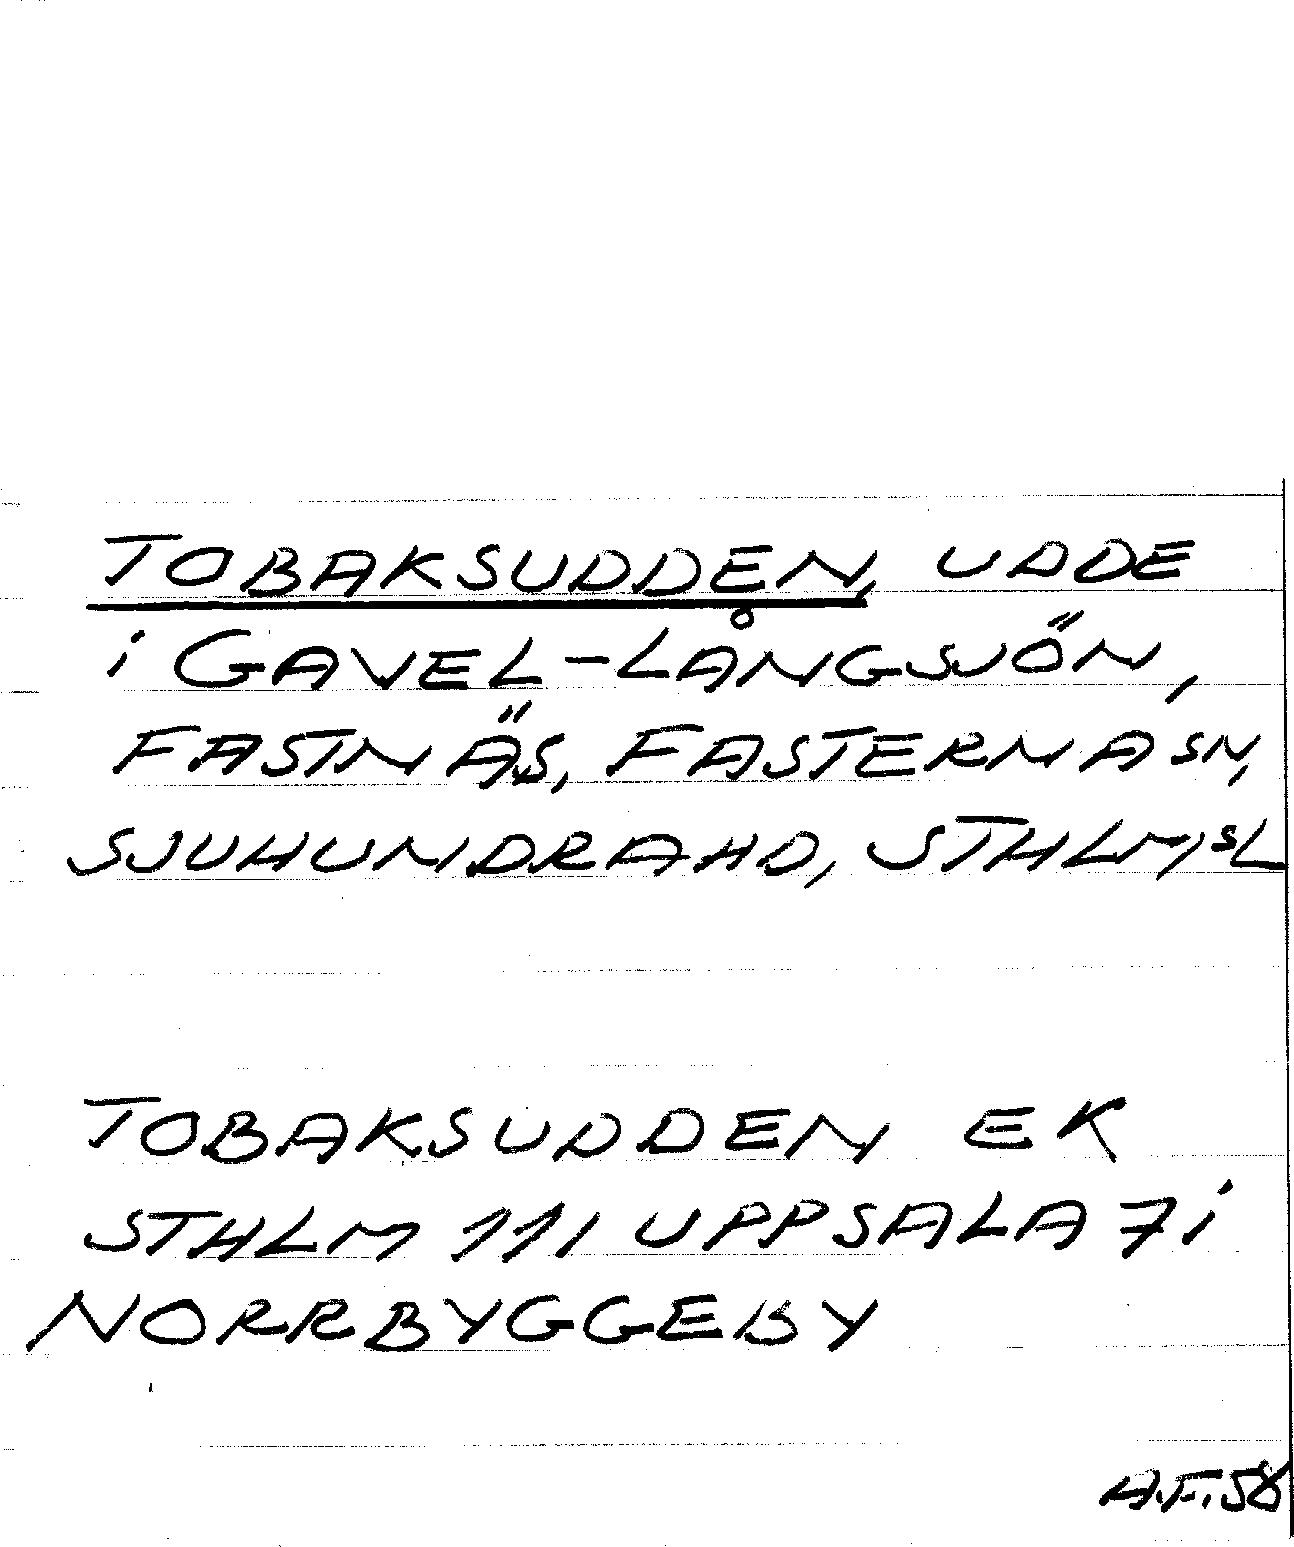 TOBAKSUDDEN, UDDE
i GAVEL-LÅNGSJÖN,
FASTNÄS, FASTERNA SN,
SJUHUNDRA HD, STHLM,SL
TOBAKSUDDEN EK
STHLM 111 UPPSALA 7 i
NORRBYGGEBY
A.F. 58